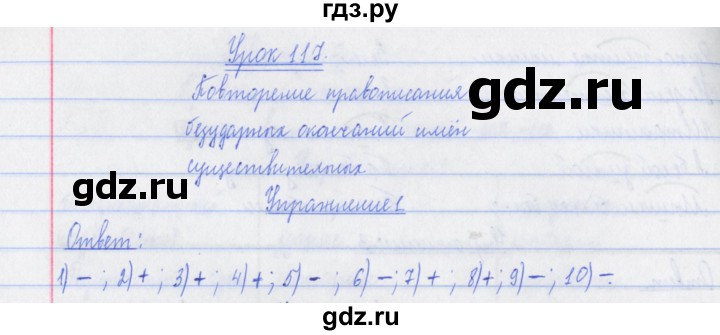 гдз.ру
Урок 117.
Повторение правописания
gdz.ru
безударных окончаний имён
существительных
gdz.ru
Упражнение 1
Ответ:
1) – ; 2) + ; 3) + ; 4) + ; 5) – ; 6) – ; 7) + ; 8) + ; 9) – ; 10) –.
gdz.ru